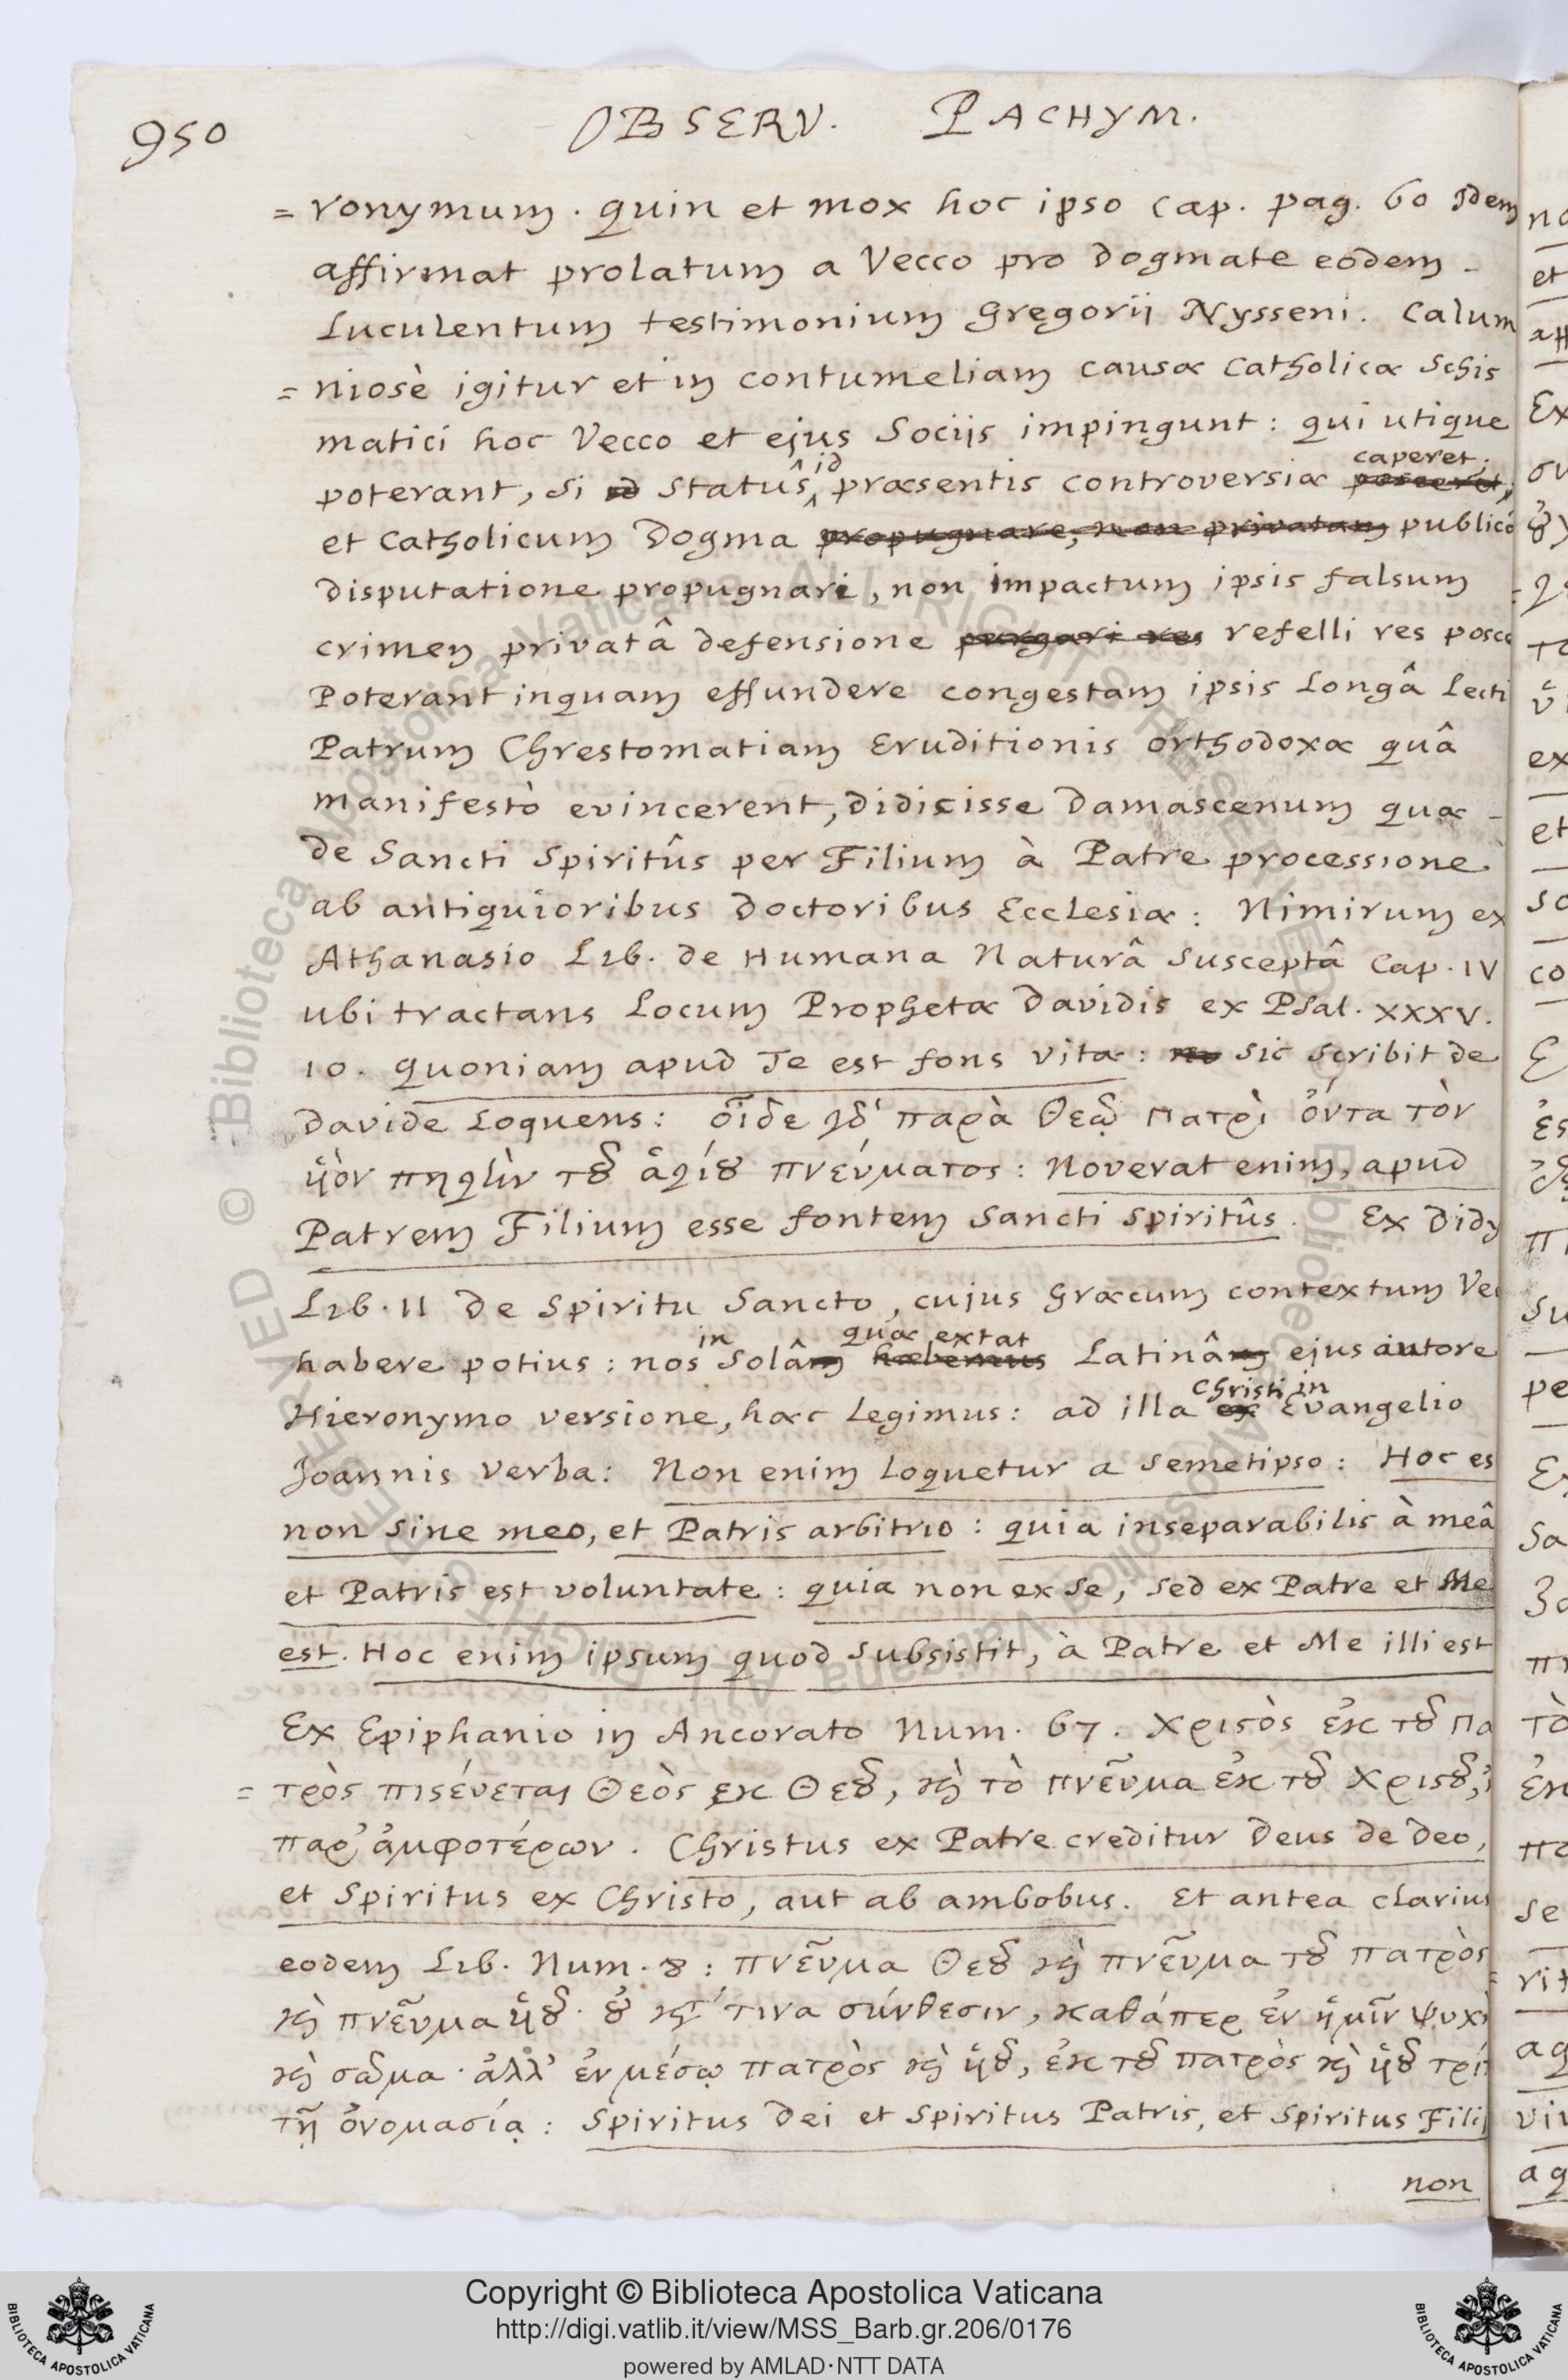 950 OBSERV. PACHYM.
= ronymum. quin et mox hoc ipso cap. pag. 60 idem
affirmat prolatum a Vecco pro dogmate eodem -
Luculentum testimonium Gregorii Nysseni. Calum
= niosè igitur et in contumeliam causæ Catholicæ Schis
matici hoc Vecco et ejus Sociis impingunt: qui utique
id caperet;
poterant, si id statûs præsentis controversiæ posceret;
et Catholicum Dogma propugnare, non privatam publicâ
disputatione propugnari, non impactum ipsis falsum
crimen privatâ defensione purgari res refelli res posce
Poterant inquam effundere congestam ipsis Longâ Lecti
Patrum Chrestomatiam Eruditionis orthodoxæ quâ
manifestò evincerent, didicisse Damascenum quæ -
de Sancti Spiritûs per Filium à Patre processione
ab antiquioribus Doctoribus Ecclesiæ: Nimirum ex
Athanasio Lib. de Humana Naturâ Susceptâ Cap. IV
ubi tractans Locum Prophetæ Davidis ex Psal. XXXV.
10. quoniam apud Te est fons vitæ: no sic scribit de
Davide Loquens: οἶδε γδ' παρὰ Θεῷ Πατρὶ ὄντα τὸν
ὑὸν πηγὴν τȣ͂ ἁγίȣ πνεύματος: Noverat enim, apud
Patrem Filium esse fontem Sancti Spiritûs. Ex Didy
Lib. II de Spiritu Sancto, cujus Græcum contextum Ve
in quæ extat
habere potius: nos solâm habemus Latinâm ejus autore
Christi in
Hieronymo versione, hæc Legimus: ad illa ex Evangelio
Joannis verba: Non enim Loquetur a semetipso: Hoc es
non sine meo, et Patris arbitrio: quia inseparabilis à meâ
et Patris est voluntate: quia non ex se, sed ex Patre et Me
est. Hoc enim ipsum quod subsistit, à Patre et Me illi est
Ex Epiphanio in Ancorato Num. 67. Χριϛὸς ἐκ τȣ͂ Πα
= τρὸς πιϛεύεται Θεὸς ἐκ Θεȣ͂, καὶ τὸ πνεῦμα ἐκ τȣ͂ Χριϛȣ͂, ἢ
παρ' ἀμφοτέρων. Christus ex Patre creditur Deus de Deo,
et Spiritus ex Christo, aut ab ambobus. Et antea clarius
eodem Lib. Num. 8: πνεῦμα Θεȣ͂ καὶ πνεῦμα τȣ͂ πατρὸς
καὶ πνεῦμα ὑȣ͂· ȣ̓ κατά τινα σύνθεσιν, καθάπερ ἐν ἡμῖν ψυχὴ
καὶ σῶμα· ἀλλ' ἐν μέσῳ πατρὸς καὶ ὑȣ͂, ἐκ τȣ͂ πατρὸς καὶ ὑȣ͂ τρί
τῇ ὀνομασίᾳ: Spiritus Dei et Spiritus Patris, et Spiritus Filii
non
Copyright © Biblioteca Apostolica Vaticana
http://digi.vatlib.it/view/MSS_Barb.gr.206/0176
powered by AMLAD·NTT DATA